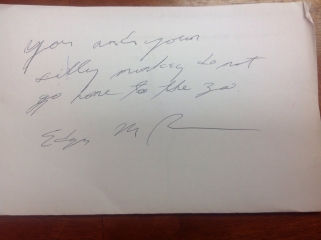 you and your
silly monkey do not
go home to the zoo